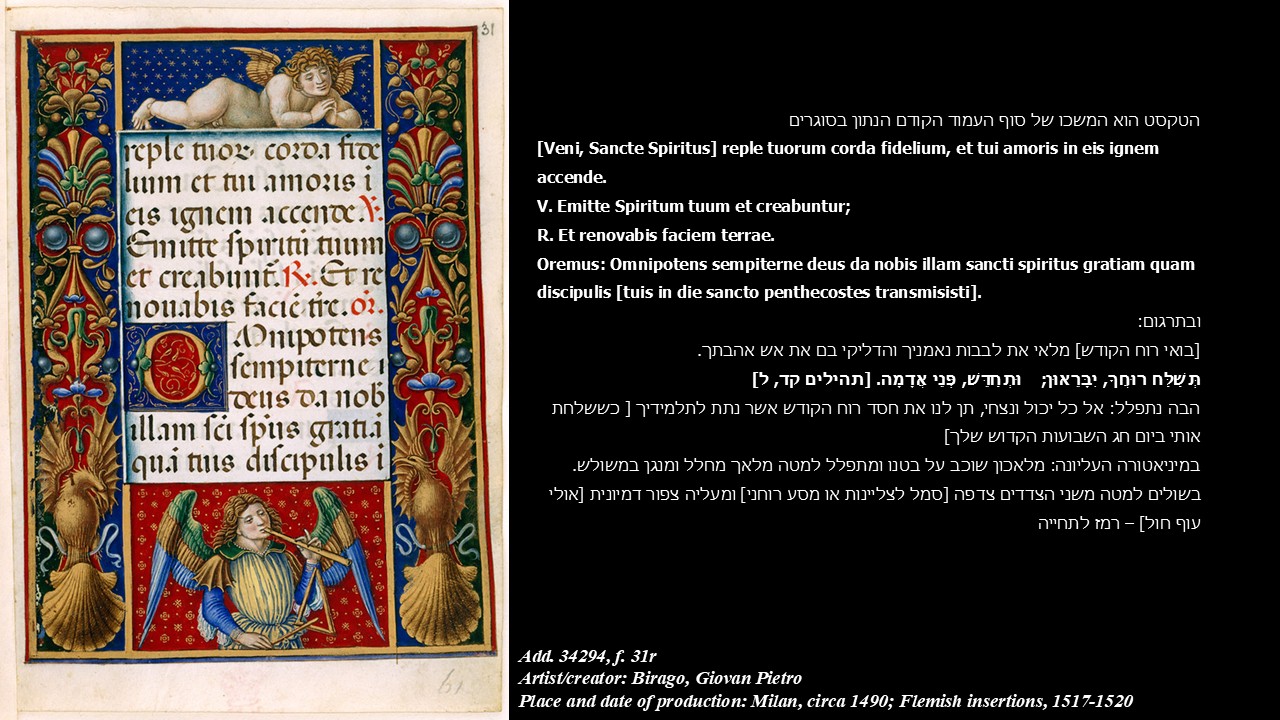 31
reple tuoꝝ corda fide
lium et tui amoris i
eis ignem accende. V.
Emitte spiritū tuum
et creabunt̄. R. Et re
nouabis faciē tr̄e. or̄.
Omnipotens
sempiterne i
deus da nob
illam sc̄i sp̄us gratiā
quā tuis discipulis i
61
הטקסט הוא המשכו של סוף העמוד הקודם הנתון בסוגרים
[Veni, Sancte Spiritus] reple tuorum corda fidelium, et tui amoris in eis ignem
accende.
V. Emitte Spiritum tuum et creabuntur;
R. Et renovabis faciem terrae.
Oremus: Omnipotens sempiterne deus da nobis illam sancti spiritus gratiam quam
discipulis [tuis in die sancto penthecostes transmisisti].
ובתרגום:
[בואי רוח הקודש] מלאי את לבבות נאמניך והדליקי בם את אש אהבתך.
תְּשַׁלַּח רוּחֲךָ, יִבָּרֵאוּן; וּתְחַדֵּשׁ, פְּנֵי אֲדָמָה. [תהילים קד, ל]
הבה נתפלל: אל כל יכול ונצחי, תן לנו את חסד רוח הקודש אשר נתת לתלמידיך [ כששלחת
אותי ביום חג השבועות הקדוש שלך]
במיניאטורה העליונה: מלאכון שוכב על בטנו ומתפלל למטה מלאך מחלל ומנגן במשולש.
בשולים למטה משני הצדדים צדפה [סמל לצליינות או מסע רוחני] ומעליה צפור דמיונית [אולי
עוף חול] – רמז לתחייה
Add. 34294, f. 31r
Artist/creator: Birago, Giovan Pietro
Place and date of production: Milan, circa 1490; Flemish insertions, 1517-1520